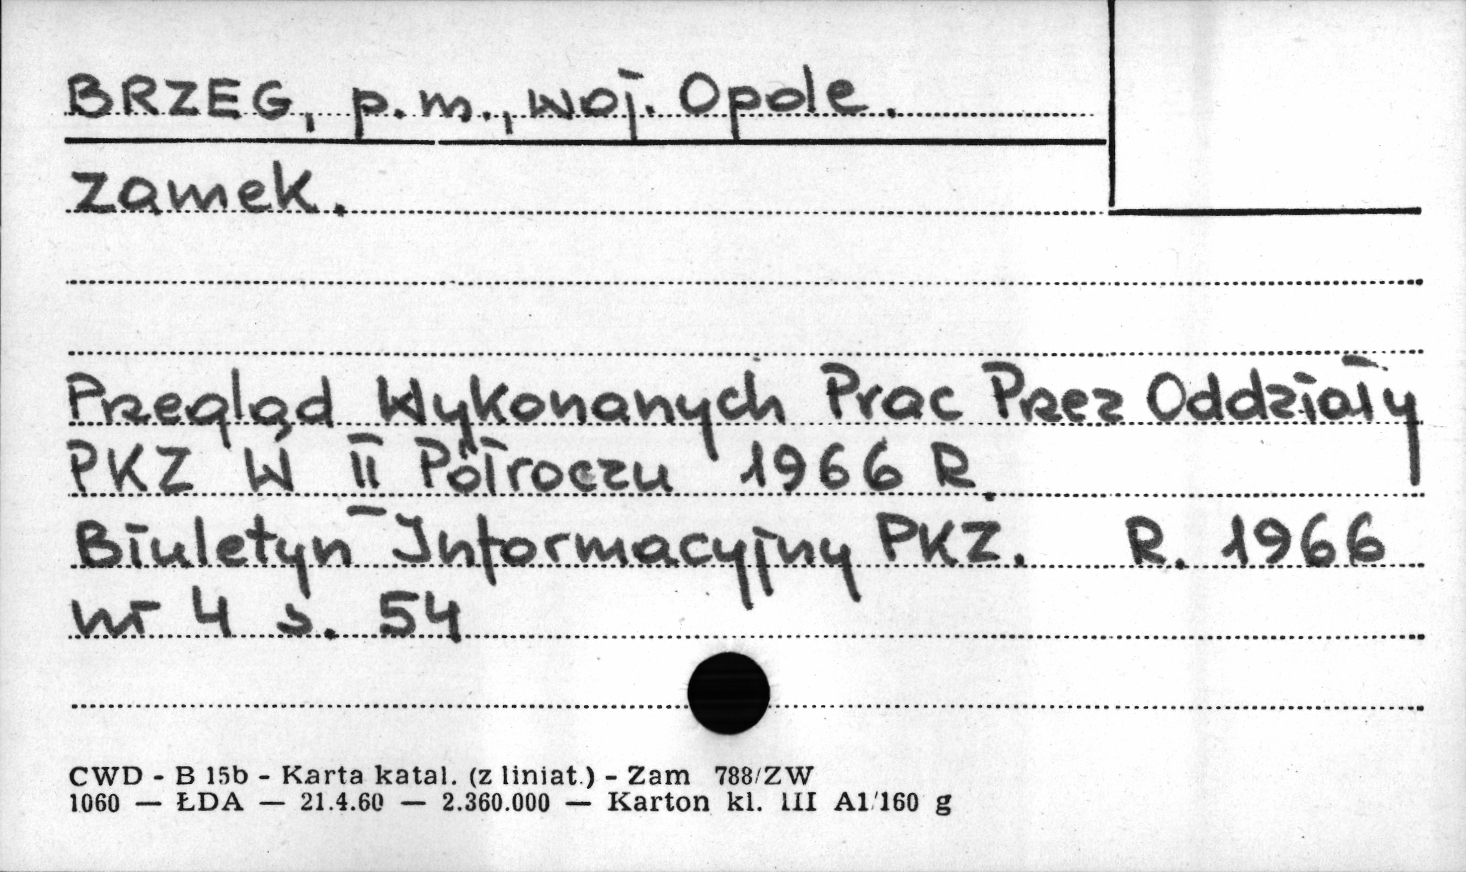 BRZEG, p.m., woj. Opole.
zamek.
Przegląd Wykonanych Prac Przez Oddziały
PKZ W II Półroczu 1966 R.
Biuletyn Informacyjny PKZ. R. 1966
nr 4 s. 54
CWD - B 15b - Karta katal. (z liniat.) - Zam 788/ZW
1060 — ŁDA — 21.4.60 — 2.360.000 — Karton kl. III A1/160 g